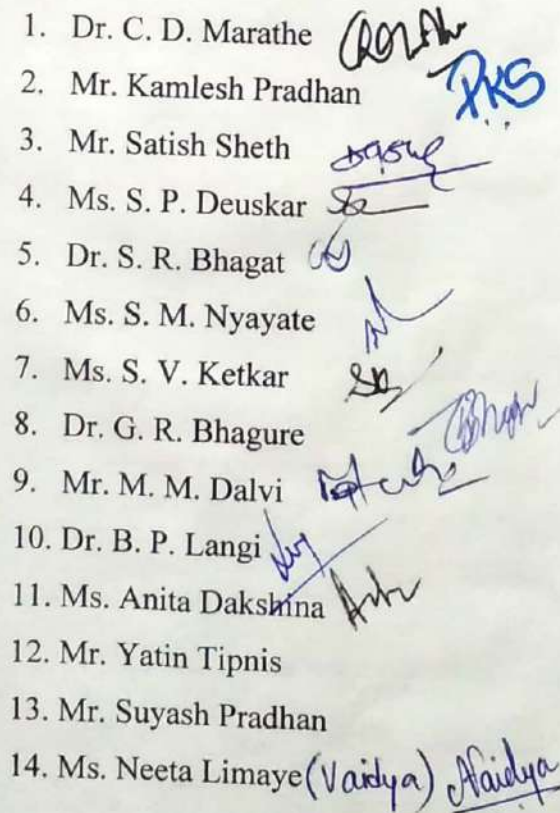 1. Dr. C. D. Marathe
2. Mr. Kamlesh Pradhan PKS
3. Mr. Satish Sheth
4. Ms. S. P. Deuskar
5. Dr. S. R. Bhagat
6. Ms. S. M. Nyayate
7. Ms. S. V. Ketkar
8. Dr. G. R. Bhagure
9. Mr. M. M. Dalvi
10. Dr. B. P. Langi
11. Ms. Anita Dakshina
12. Mr. Yatin Tipnis
13. Mr. Suyash Pradhan
14. Ms. Neeta Limaye (Vaidya) NVaidya